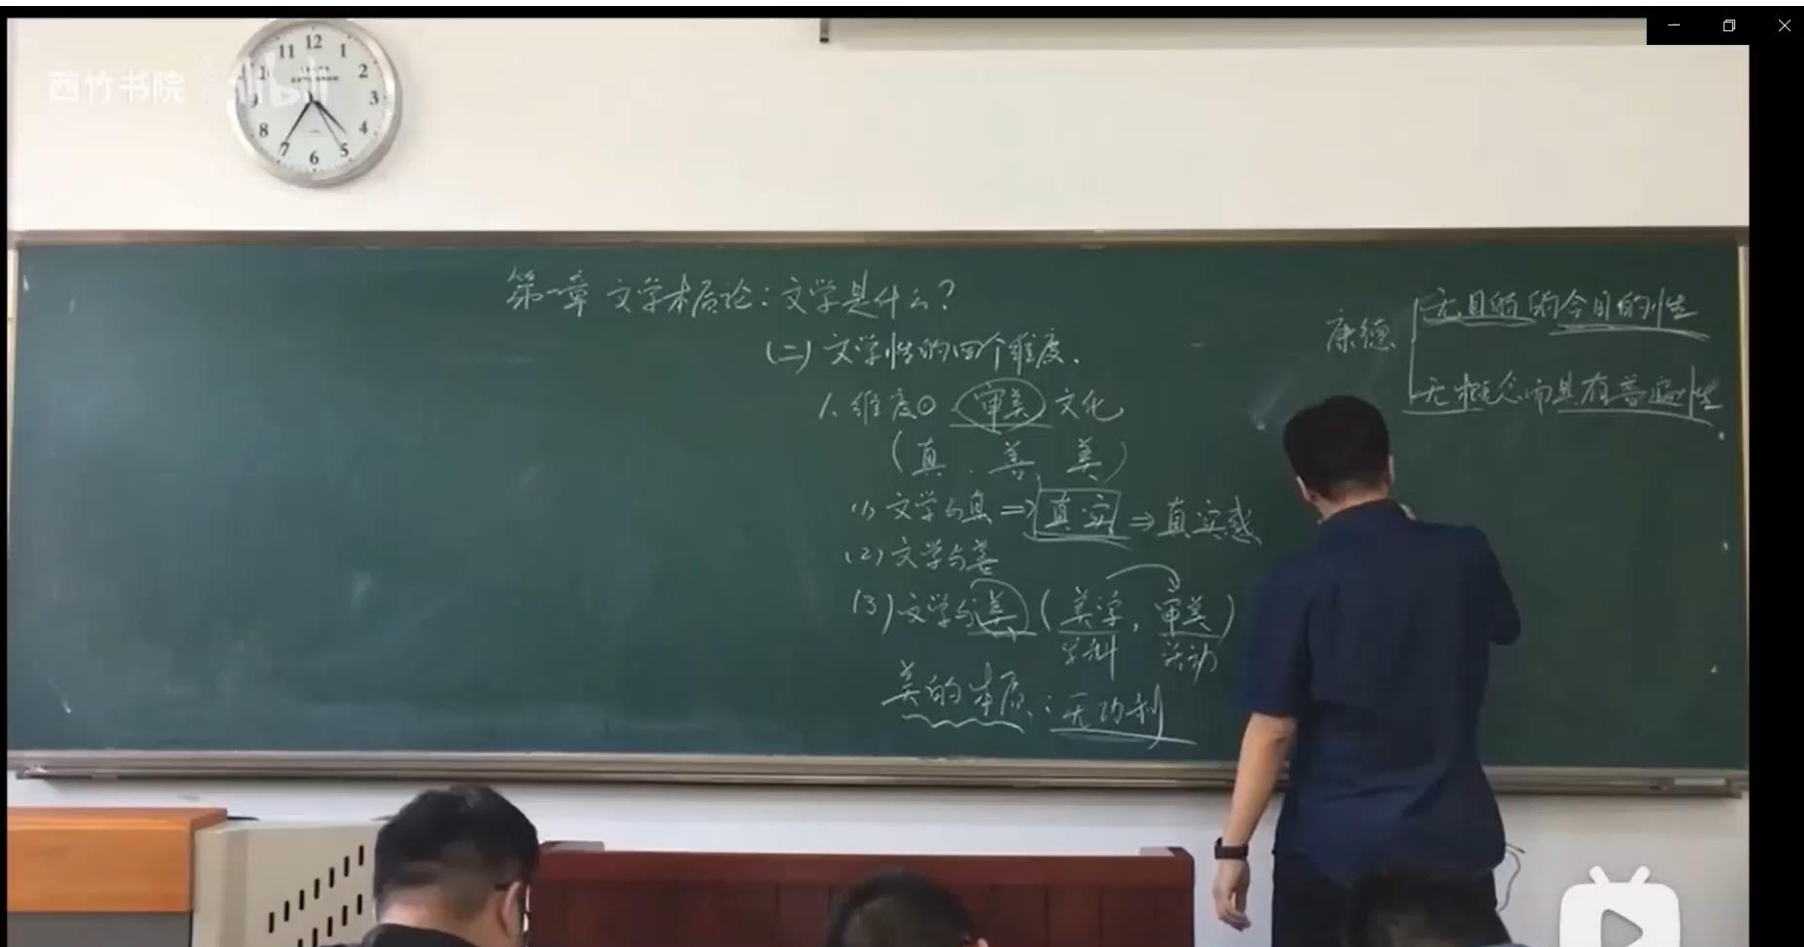 西竹书院 bilibili
12
11 1
10 2
9 3
8 4
7 5
6
第一章 文学本质论：文学是什么？
(二) 文学性的四个维度、
1、维度① 审美 文化
(真、善、美)
(1) 文学与真 ⇒ 真实 ⇒ 真实感
(2) 文学与善
(3) 文学与美 (美学, 审美)
学科 活动
美的本质：无功利
康德
无目的的合目的性
无概念而具有普遍性